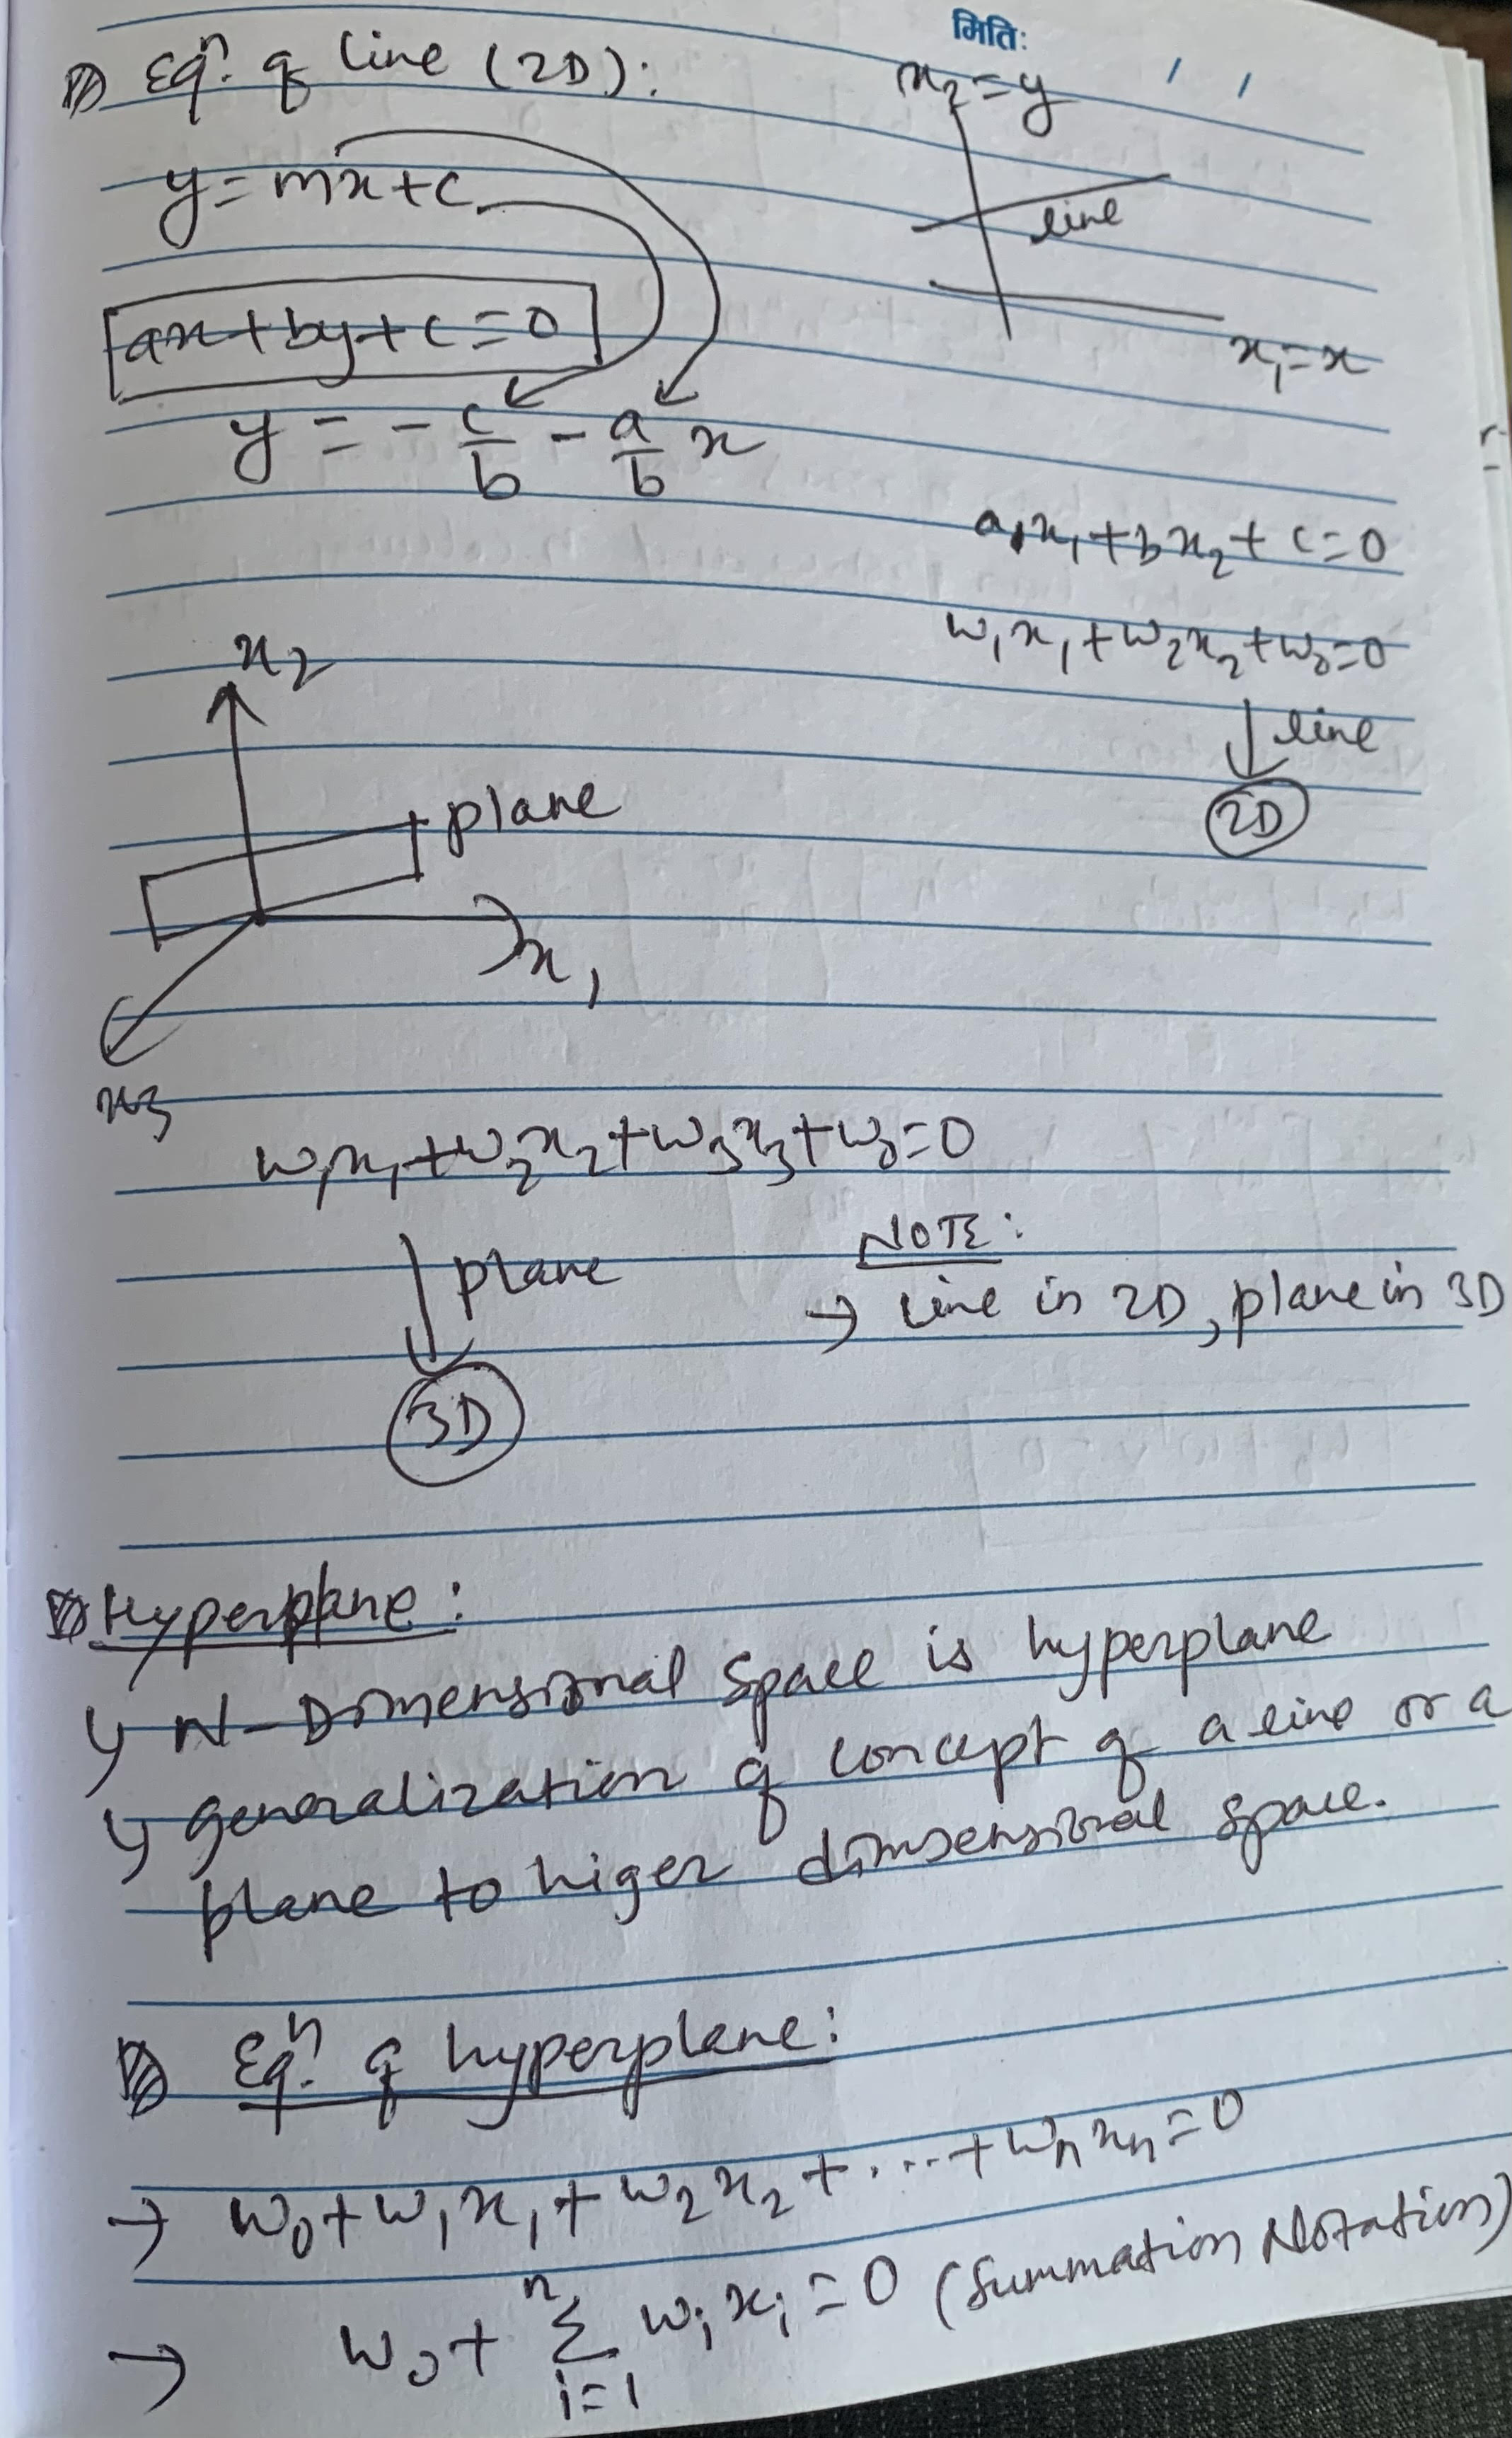 मिति:
Eqn. of line (2D):
x2 = y
y = mx + c
line
x1 = x
ax + by + c = 0
y = - c/b - a/b x
a x1 + b x2 + c = 0
w1x1 + w2x2 + w0 = 0
line
2D
x2
plane
x1
x3
w1x1 + w2x2 + w3x3 + w0 = 0
plane
3D
NOTE:
→ Line in 2D, plane in 3D
Hyperplane:
↳ N-Dimensional Space is hyperplane
↳ generalization of concept of a line or a
plane to higer dimsensional space.
Eqn. of hyperplane:
→ w0 + w1x1 + w2x2 + .... + wnxn = 0
→ w0 + n∑i=1 wixi = 0 (Summation Notation)